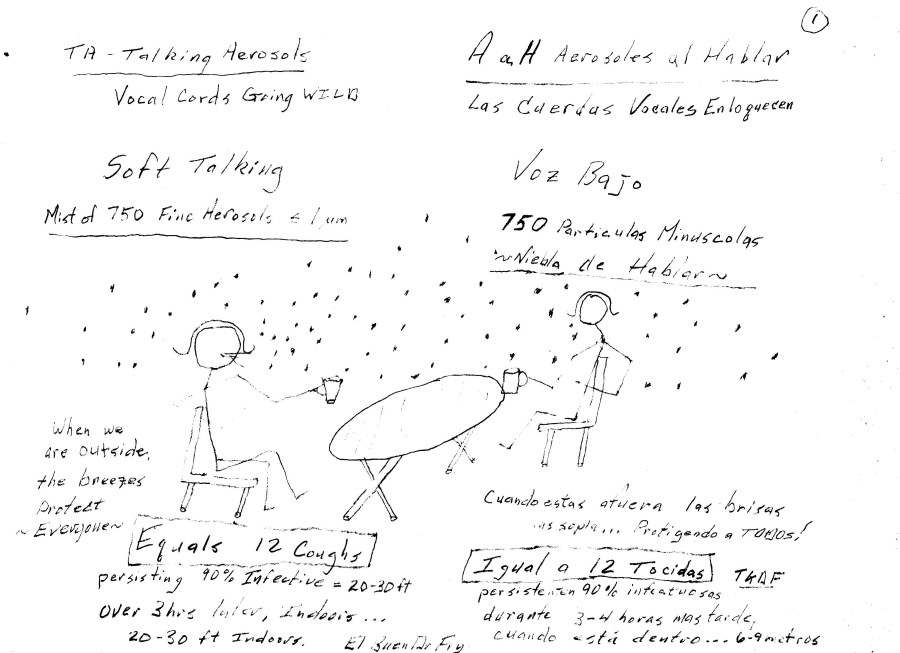 1
TA - Talking Aerosols
Vocal Cords Going WILD
Soft Talking
Mist of 750 Fine Aerosols ≤ 1 um
A a H Aerosoles al Hablar
Las Cuerdas Vocales Enloquecen
Voz Bajo
750 Particulas Minuscolas
~Niebla de Hablar~
When we
are outside,
the breezes
Protect
~Everyone~
Equals 12 Coughs
persisting 90% Infective = 20-30 ft
Over 3hrs later, Indoors...
20-30 ft Indoors.
Cuando estas afuera las brisas
sopla... Protigendo a TODOS!
Igual a 12 Tocidas
persisten en 90% infeatuosas
durante 3-4 horas mas tarde,
cuando está dentro... 6-9 metros